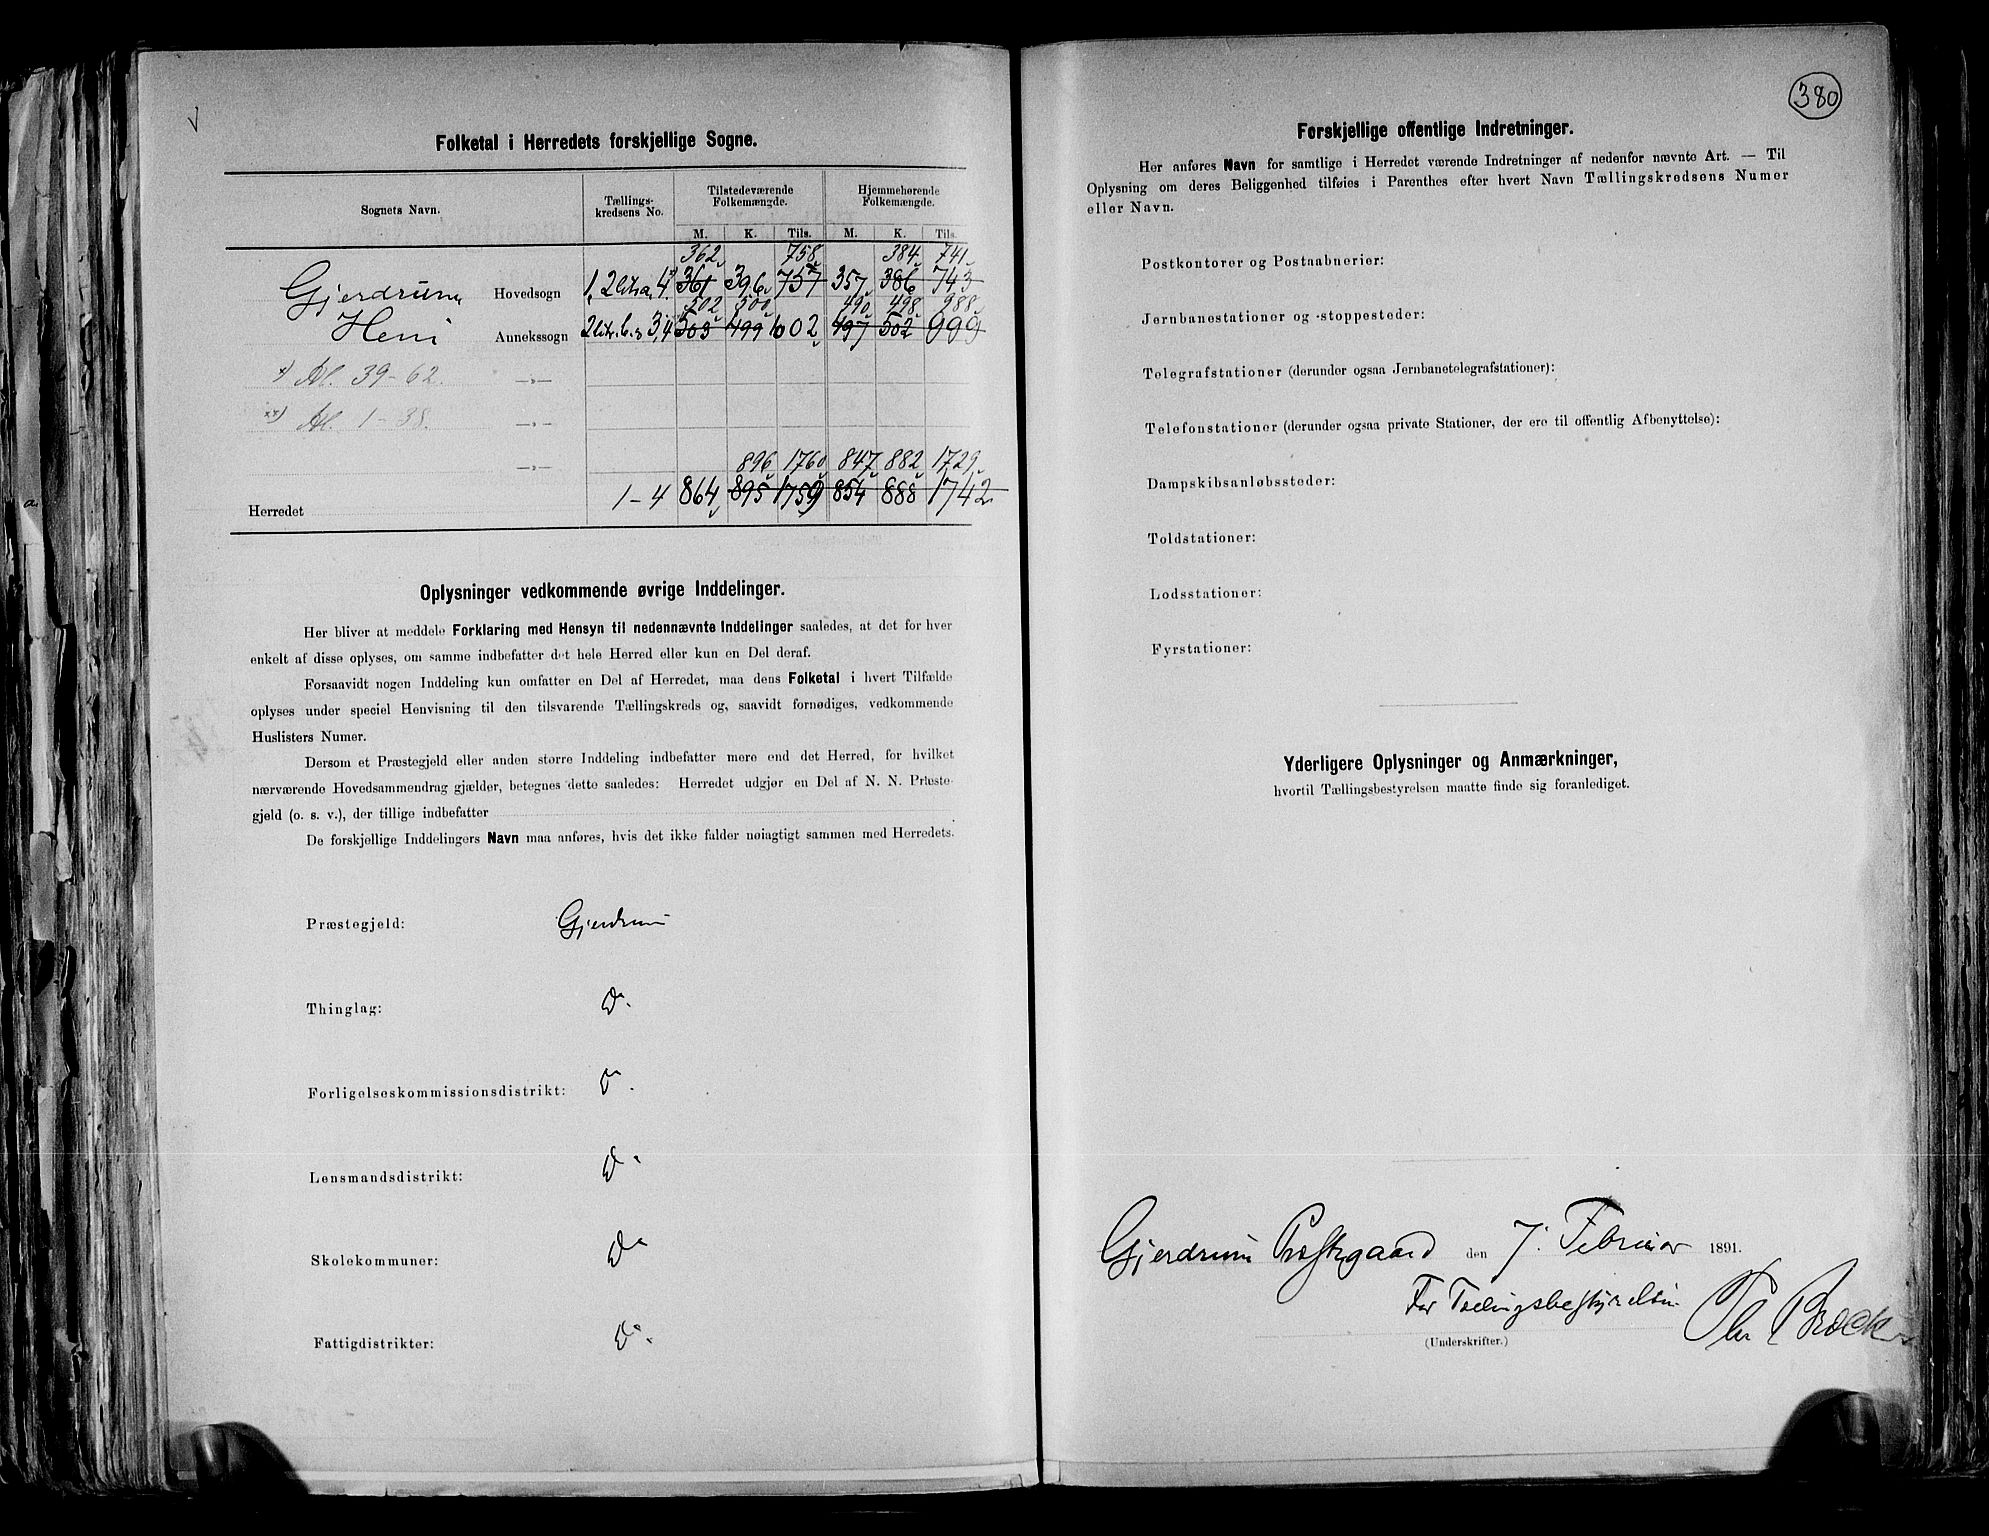 Folketal i Herredets forskjellige Sogne.
Sognets Navn. Tællings-kredsens No. Tilstedeværende Folkemængde. Hjemmehørende Folkemængde.
M. K. Tils. M. K. Tils.
362 758 384 741
Gjerdrum Hovedsogn 1, 2 litr. a, 4 361 396 757 357 386 743
502 500 490 498 988
Heni Annekssogn 2 litr. b, 3, 4 503 499 1002 497 502 999
*) Hl. 39-62. —»—
**) Hl. 1-38. —»—
—»—
896 1760 847 882 1729
Herredet 1-4 864 895 1759 854 888 1742
Oplysninger vedkommende øvrige Inddelinger.
Her bliver at meddele Forklaring med Hensyn til nedennævnte Inddelinger saaledes, at det for hver
enkelt af disse oplyses, om samme indbefatter det hele Herred eller kun en Del deraf.
Forsaavidt nogen Inddeling kun omfatter en Del af Herredet, maa dens Folketal i hvert Tilfælde
oplyses under speciel Henvisning til den tilsvarende Tællingskreds og, saavidt fornødiges, vedkommende
Huslisters Numer.
Dersom et Præstegjeld eller anden større Inddeling indbefatter mere end det Herred, for hvilket
nærværende Hovedsammendrag gjælder, betegnes dette saaledes: Herredet udgjør en Del af N. N. Præste-
gjeld (o. s. v.), der tillige indbefatter
De forskjellige Inddelingers Navn maa anføres, hvis det ikke falder nøiagtigt sammen med Herredets.
Præstegjeld: Gjerdrum
Thinglag: Do.
Forligelseskommissionsdistrikt: Do.
Lensmandsdistrikt: Do.
Skolekommuner: Do
Fattigdistrikter: Do.
380
Forskjellige offentlige Indretninger.
Her anføres Navn for samtlige i Herredet værende Indretninger af nedenfor nævnte Art. — Til
Oplysning om deres Beliggenhed tilføies i Parenthes efter hvert Navn Tællingskredsens Numer
eller Navn.
Postkontorer og Postaabnerier:
Jernbanestationer og -stoppesteder:
Telegrafstationer (derunder ogsaa Jernbanetelegrafstationer):
Telefonstationer (derunder ogsaa private Stationer, der ere til offentlig Afbenyttelse):
Dampskibsanløbssteder:
Toldstationer:
Lodsstationer:
Fyrstationer:
Yderligere Oplysninger og Anmærkninger,
hvortil Tællingsbestyrelsen maatte finde sig foranlediget.
Gjerdrum Præstegaard den 7. Februar 1891.
For Tællingsbestyrelsen
(Underskrifter.)